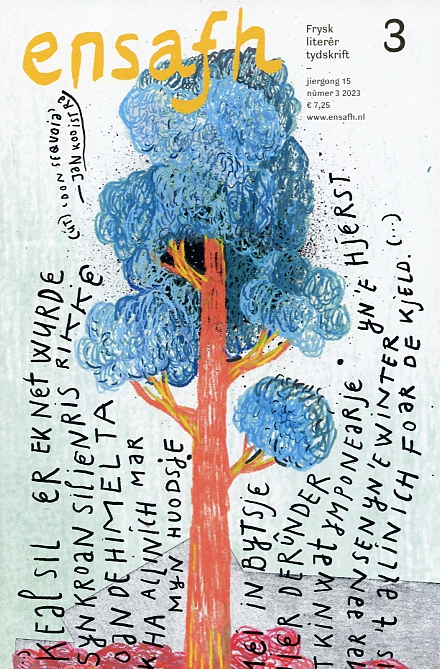 ensafh
Frysk
literêr
tydskrift
–
jiergong 15
nûmer 3 2023
€ 7,25
www.ensafh.nl
3
(út) 'Don Sequoia',
– Jan Kooistra
Keal sil er ek net wurde
syn kroan sil ienris rikke
oan de himel ta
k ha allinich mar
myn huodsje
mei in bytsje
ier derûnder
t kin wat ymponearje • yn'e hjerst
ar aansen yn'e winter
is 't allinich foar de kjeld. (...)